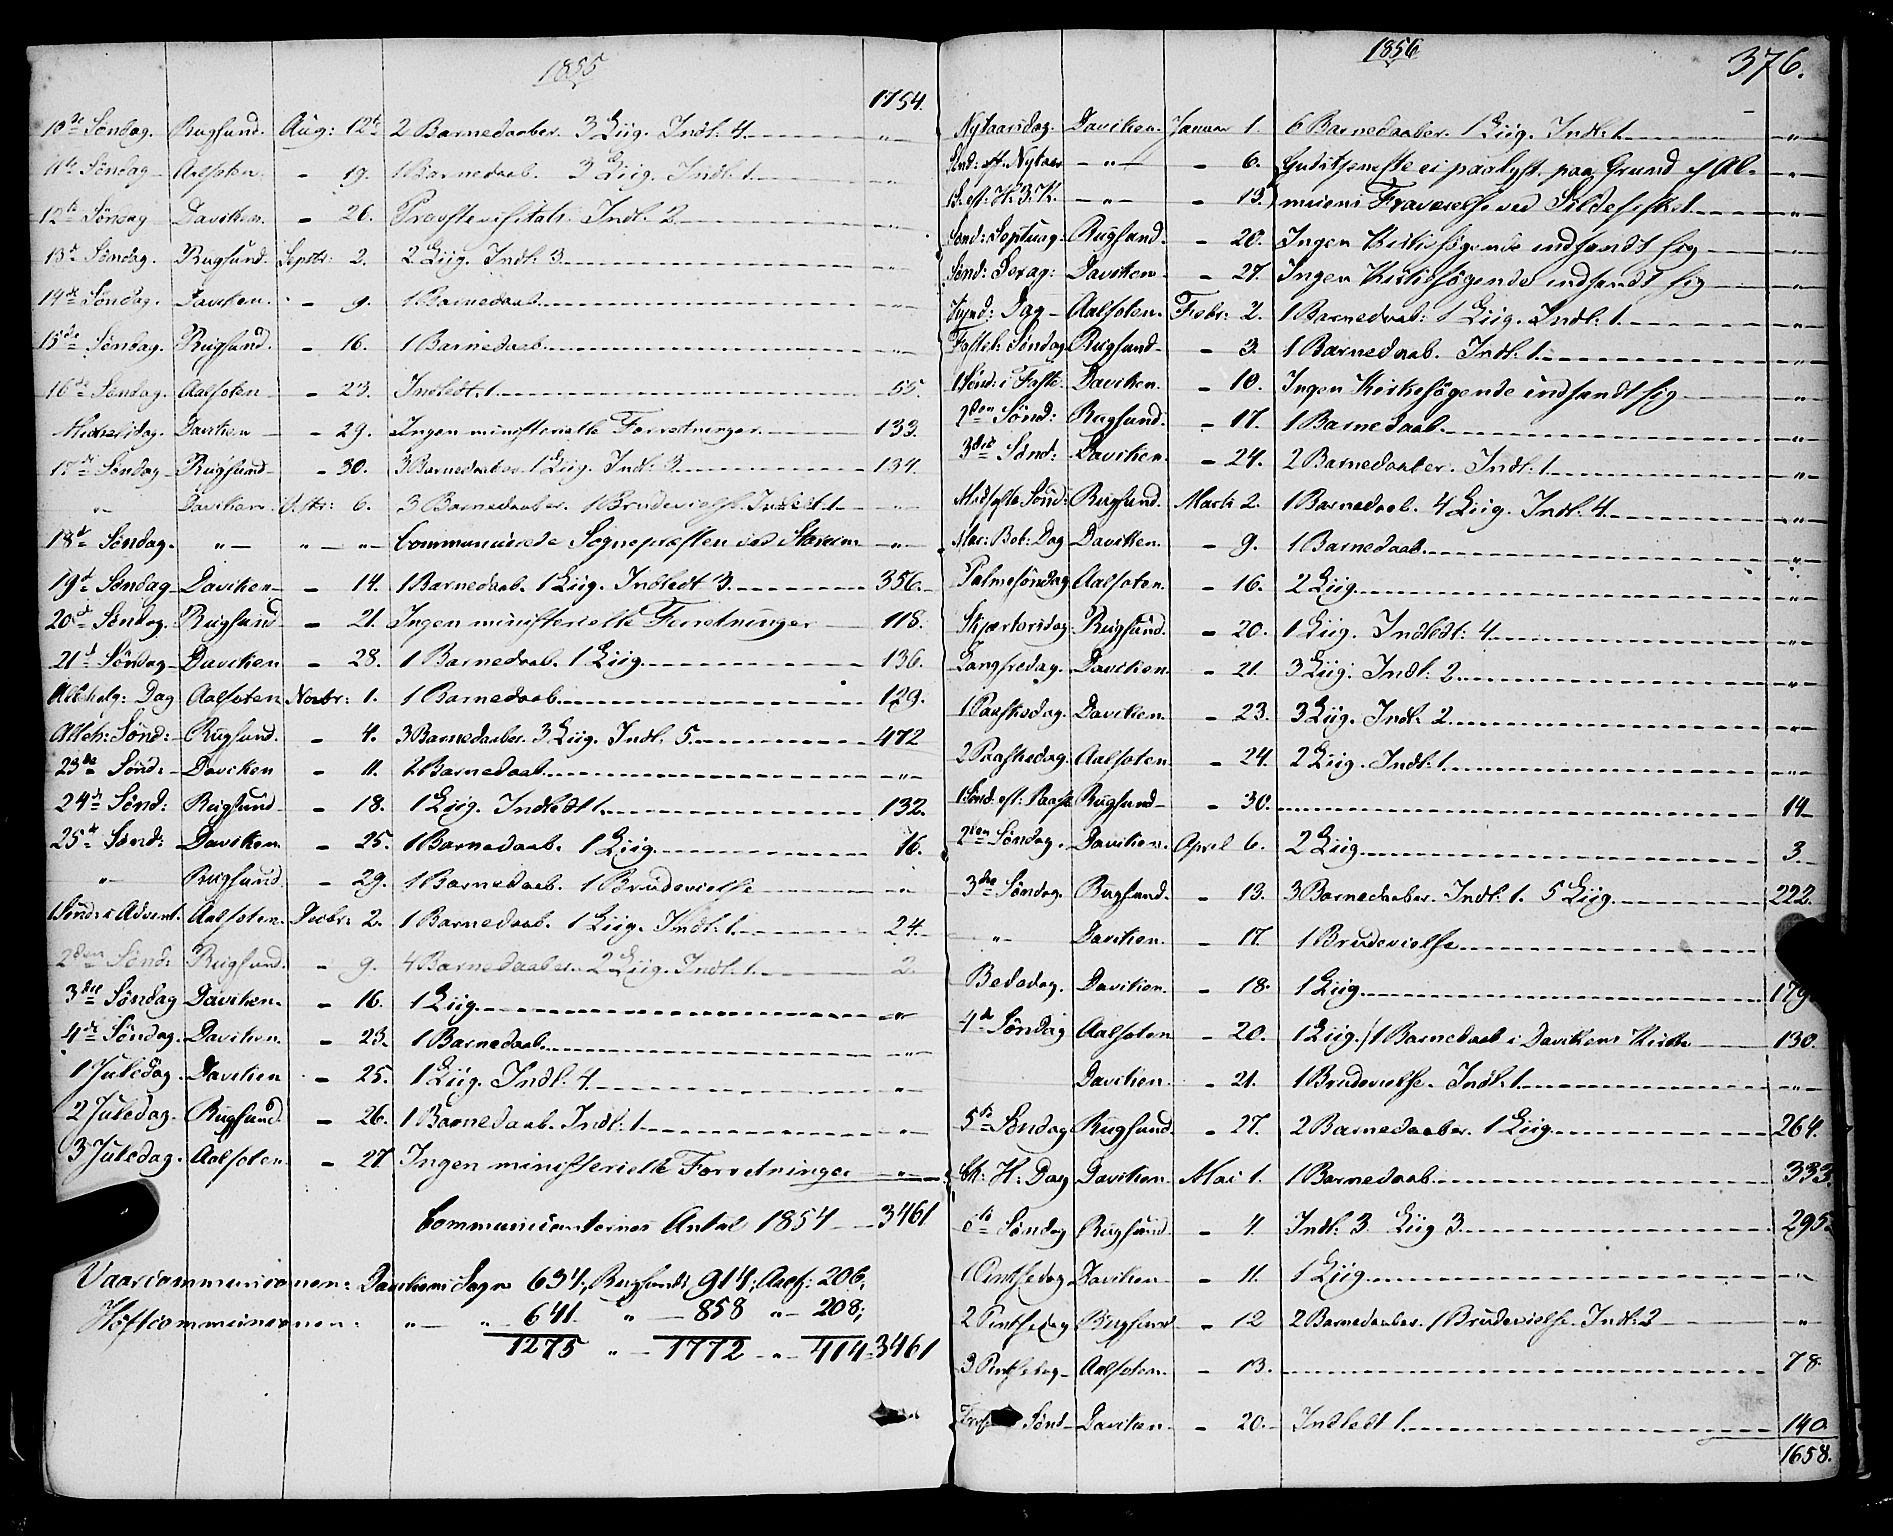 1855
1754.
10de Søndag. Rugsund. Aug: 12te 2 Barnedaaber. 3 Liig. Indl: 4. „
11te Søndag Aalfoten. - 19. 1 Barnedaab. 3 Liig. Indl: 1. „
12te Søndag Daviken. - 26. Provstevisitats. Indl: 2. „
13de Søndag. Rugsund. Septbr: 2. 2 Liig. Indl: 3. „
14de Søndag. Daviken. - 9. 1 Barnedaab. „
15de Søndag. Rugsund. - 16. 1 Barnedaab. „
16de Søndag. Aalfoten - 23. Indledt: 1. 55.
Michelsdag. Daviken - 29. Ingen ministerielle Forretninger. 133.
17de Søndag Rugsund - 30. 3 Barnedaaber 1 Liig. Indl: 3. 134.
„ Daviken. Octbr: 6. 3 Barnedaaber. 1 Brudevielse. Indledt: 1. „
18de Søndag. „ „ „ Communicerede Sognepræsten ved „
19de Søndag Daviken - 14. 1 Barnedaab. 1 Liig. Indledt 3. 356.
20de Søndag. Rugsund - 21. Ingen ministerielle Forretninger 118.
21de Søndag Daviken - 28. 1 Barnedaab. 1 Liig. 136.
Allehelg: Dag Aalfoten Novbr: 1. 1 Barnedaab. 129.
Alleh: Sønd: Rugsund. - 4. 3 Barnedaaber. 3 Liig. Indl: 5. 472
23de Sønd: Daviken - 11. 2 Barnedaab. „
24de Sønd: Rugsund - 18. 1 Liig. Indledt 1. 132.
25de Sønd: Daviken. - 25. 1 Barnedaab. 1 Liig. 16.
„ Rugsund. - 29. 1 Barnedaab. 1 Brudevielse „
1 Sønd: i Advent. Aalfoten. Decbr: 2. 1 Barnedaab. 1 Liig. Indl: 1. 24.
2den Sønd: Rugsund. - 9. 4 Barnedaaber. 2 Liig. Indl: 1. 2.
3die Søndag Daviken. - 16. 1 Liig. „
4de Søndag. Daviken. - 23. 1 Barnedaab. „
1 Juledag. Daviken - 25. 1 Liig. Indl: 4. „
2 Juledag. Rugsund. - 26. 1 Barnedaab. Indl: 1. „
3 Juledag. Aalfoten - 27. Ingen ministerielle Forretninger „
Communicanternes Antal 1854 3461
Vaarcommunionen: Davikens Sogn 634; Rugsunds 914; Aalf: 206;
Høstcommunionen: „ „ 641 „ 858 „ 208;
1275 „ 1772 „ 414 3461
1856
376.
Nytaarsdag. Daviken. Januar 1. 6 Barnedaaber. 1 Liig. Indl: 1. „
Sønd: eft. Nytaar „ - 6. Gudstjeneste ei paalyst paa Grund af Al- „
1 S. eft. H. 3. K. „ - 13. muens Fraværelse ved Sildefisket. „
Sønd: Septuag. Rugsund. - 20. Ingen Kirkesøgende indfandt sig „
Sønd: Sexag: Daviken - 27. Ingen Kirkesøgende indfandt sig „
Kynd: Dag Aalfoten. Febr: 2. 1 Barnedaab: 1 Liig. Indl: 1. „
Fastel: Søndag Rugsund - 3. 1 Barnedaab. Indl: 1. „
1 Sønd: i Faste Daviken. - 10. Ingen Kirkesøgende indfandt sig „
2den Sønd: Rugsund. - 17. 1 Barnedaab. „
3die Sønd: Daviken. - 24. 2 Barnedaaber. Indl: 1. „
Midfaste Sønd: Rugsund. Marts 2. 1 Barnedaab. 4 Liig. Indl: 4. „
Mar: Beb: Dag Daviken. - 9. 1 Barnedaab. „
Palmesøndag Aalfoten. - 16. 2 Liig. „
Skjærtorsdag Rugsund. - 20. 1 Liig. Indledt: 4. „
Langfredag. Daviken. - 21. 3 Liig: Indl: 2. „
1 Paaskedag. Daviken. - 23. 3 Liig. Indl: 2. „
2 Paaskedag. Aalfoten. - 24. 2 Liig. Indl: 1. „
1 Sønd: eft: Paaske Rugsund - 30. 14
2den Søndag. Daviken. April 6. 2 Liig. 3
3die Søndag. Rugsund. - 13. 3 Barnedaaber. Indl: 1. 5 Liig. 222.
„ Daviken. - 17. 1 Brudevielse
Bededag. Daviken. - 18. 1 Liig. 179
4de Søndag Aalfoten - 20. 1 Liig. / 1 Barnedaab i Davikens Kirke 130.
Daviken. - 21. 1 Brudevielse. Indl: 1. „
5te Søndag Rugsund. - 27. 2 Barnedaaber. 1 Liig. 264.
Chr: H: Dag Daviken. Mai 1. 1 Barnedaab. 333.
6te Søndag Rugsund. - 4. Indl: 3. Liig 3. 295.
1 Pintsedag Daviken - 11. 1 Liig. „
2 Pintsedag Rugsund - 12 2 Barnedaaber. 1 Brudevielse. Indl: 2 „
3 Pintsedag Aalfoten. - 13. 78.
Sønd Daviken. - 20. Indledt 1. 140.
1658.